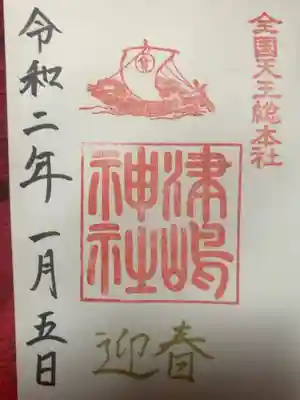 全国天王総本社
津嶋
神社
迎春
令和二年一月五日